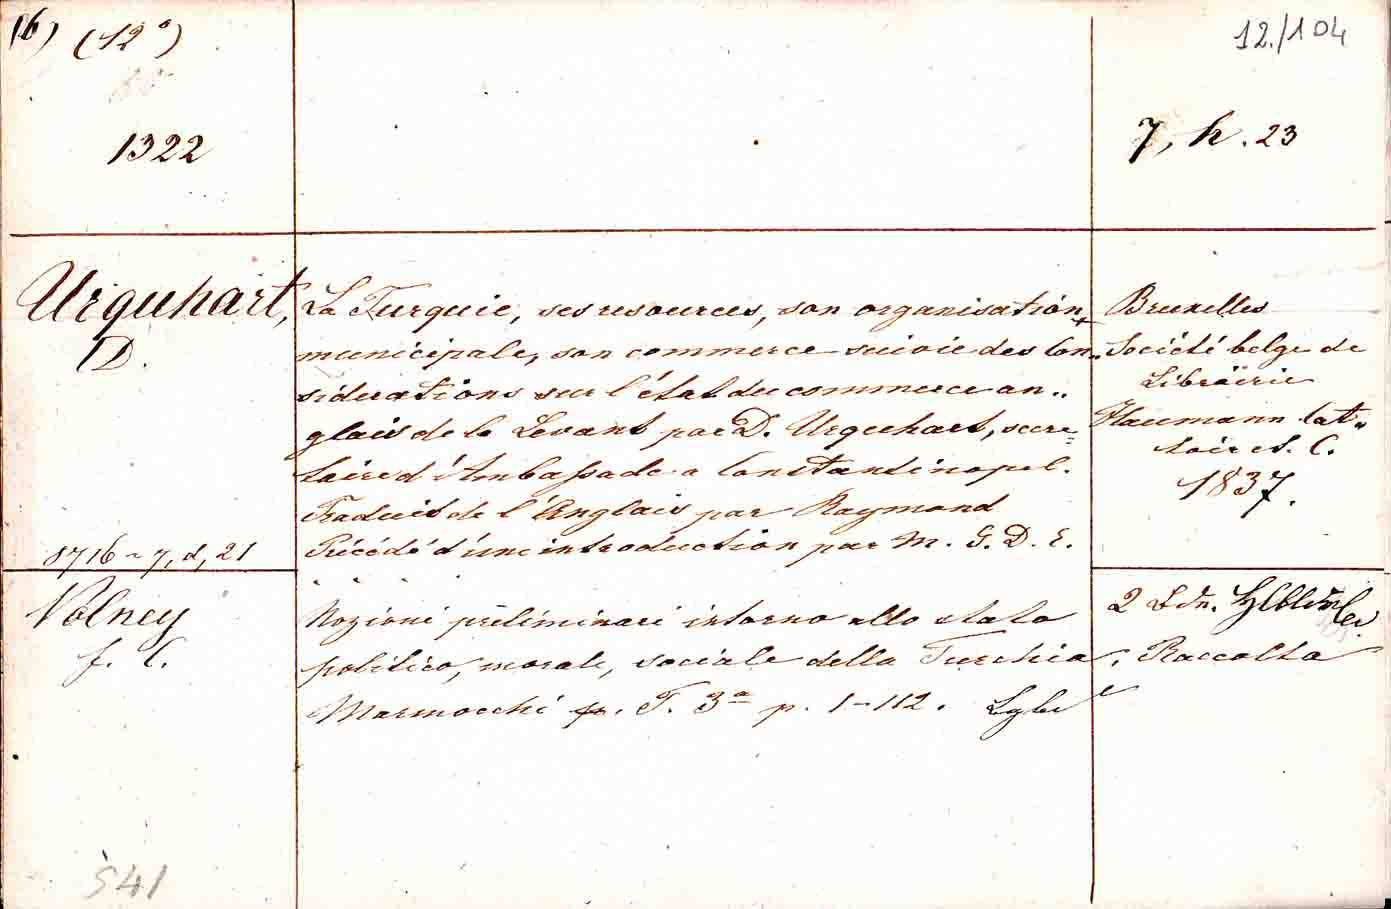 16) (12°)
12./104
1322
7, h. 23
Urquhart,
D.
La Turquie, ses resources, son organisation
municipale, son commerce suivie des Con„
sidérations sur l'état du commerce an„
glais de le Levant par D. Urquhart, secre=
taire d'Ambassade a Constantinopel.
Traduit de l'Anglais par Raymond
Précédé d'une introduction par M. G. D. E.
Bruxelles
Société belge de
Librairie
Haumann Cat„
toir et. C.
1837.
8716 ~ 7, d, 21
Volney
f. C.
Nozioni preliminari intorno allo stato
politico, morale, sociale della Turchia, Raccolta
Marmocchi T. 3ª p. 1-112.
2 Bdn.
541